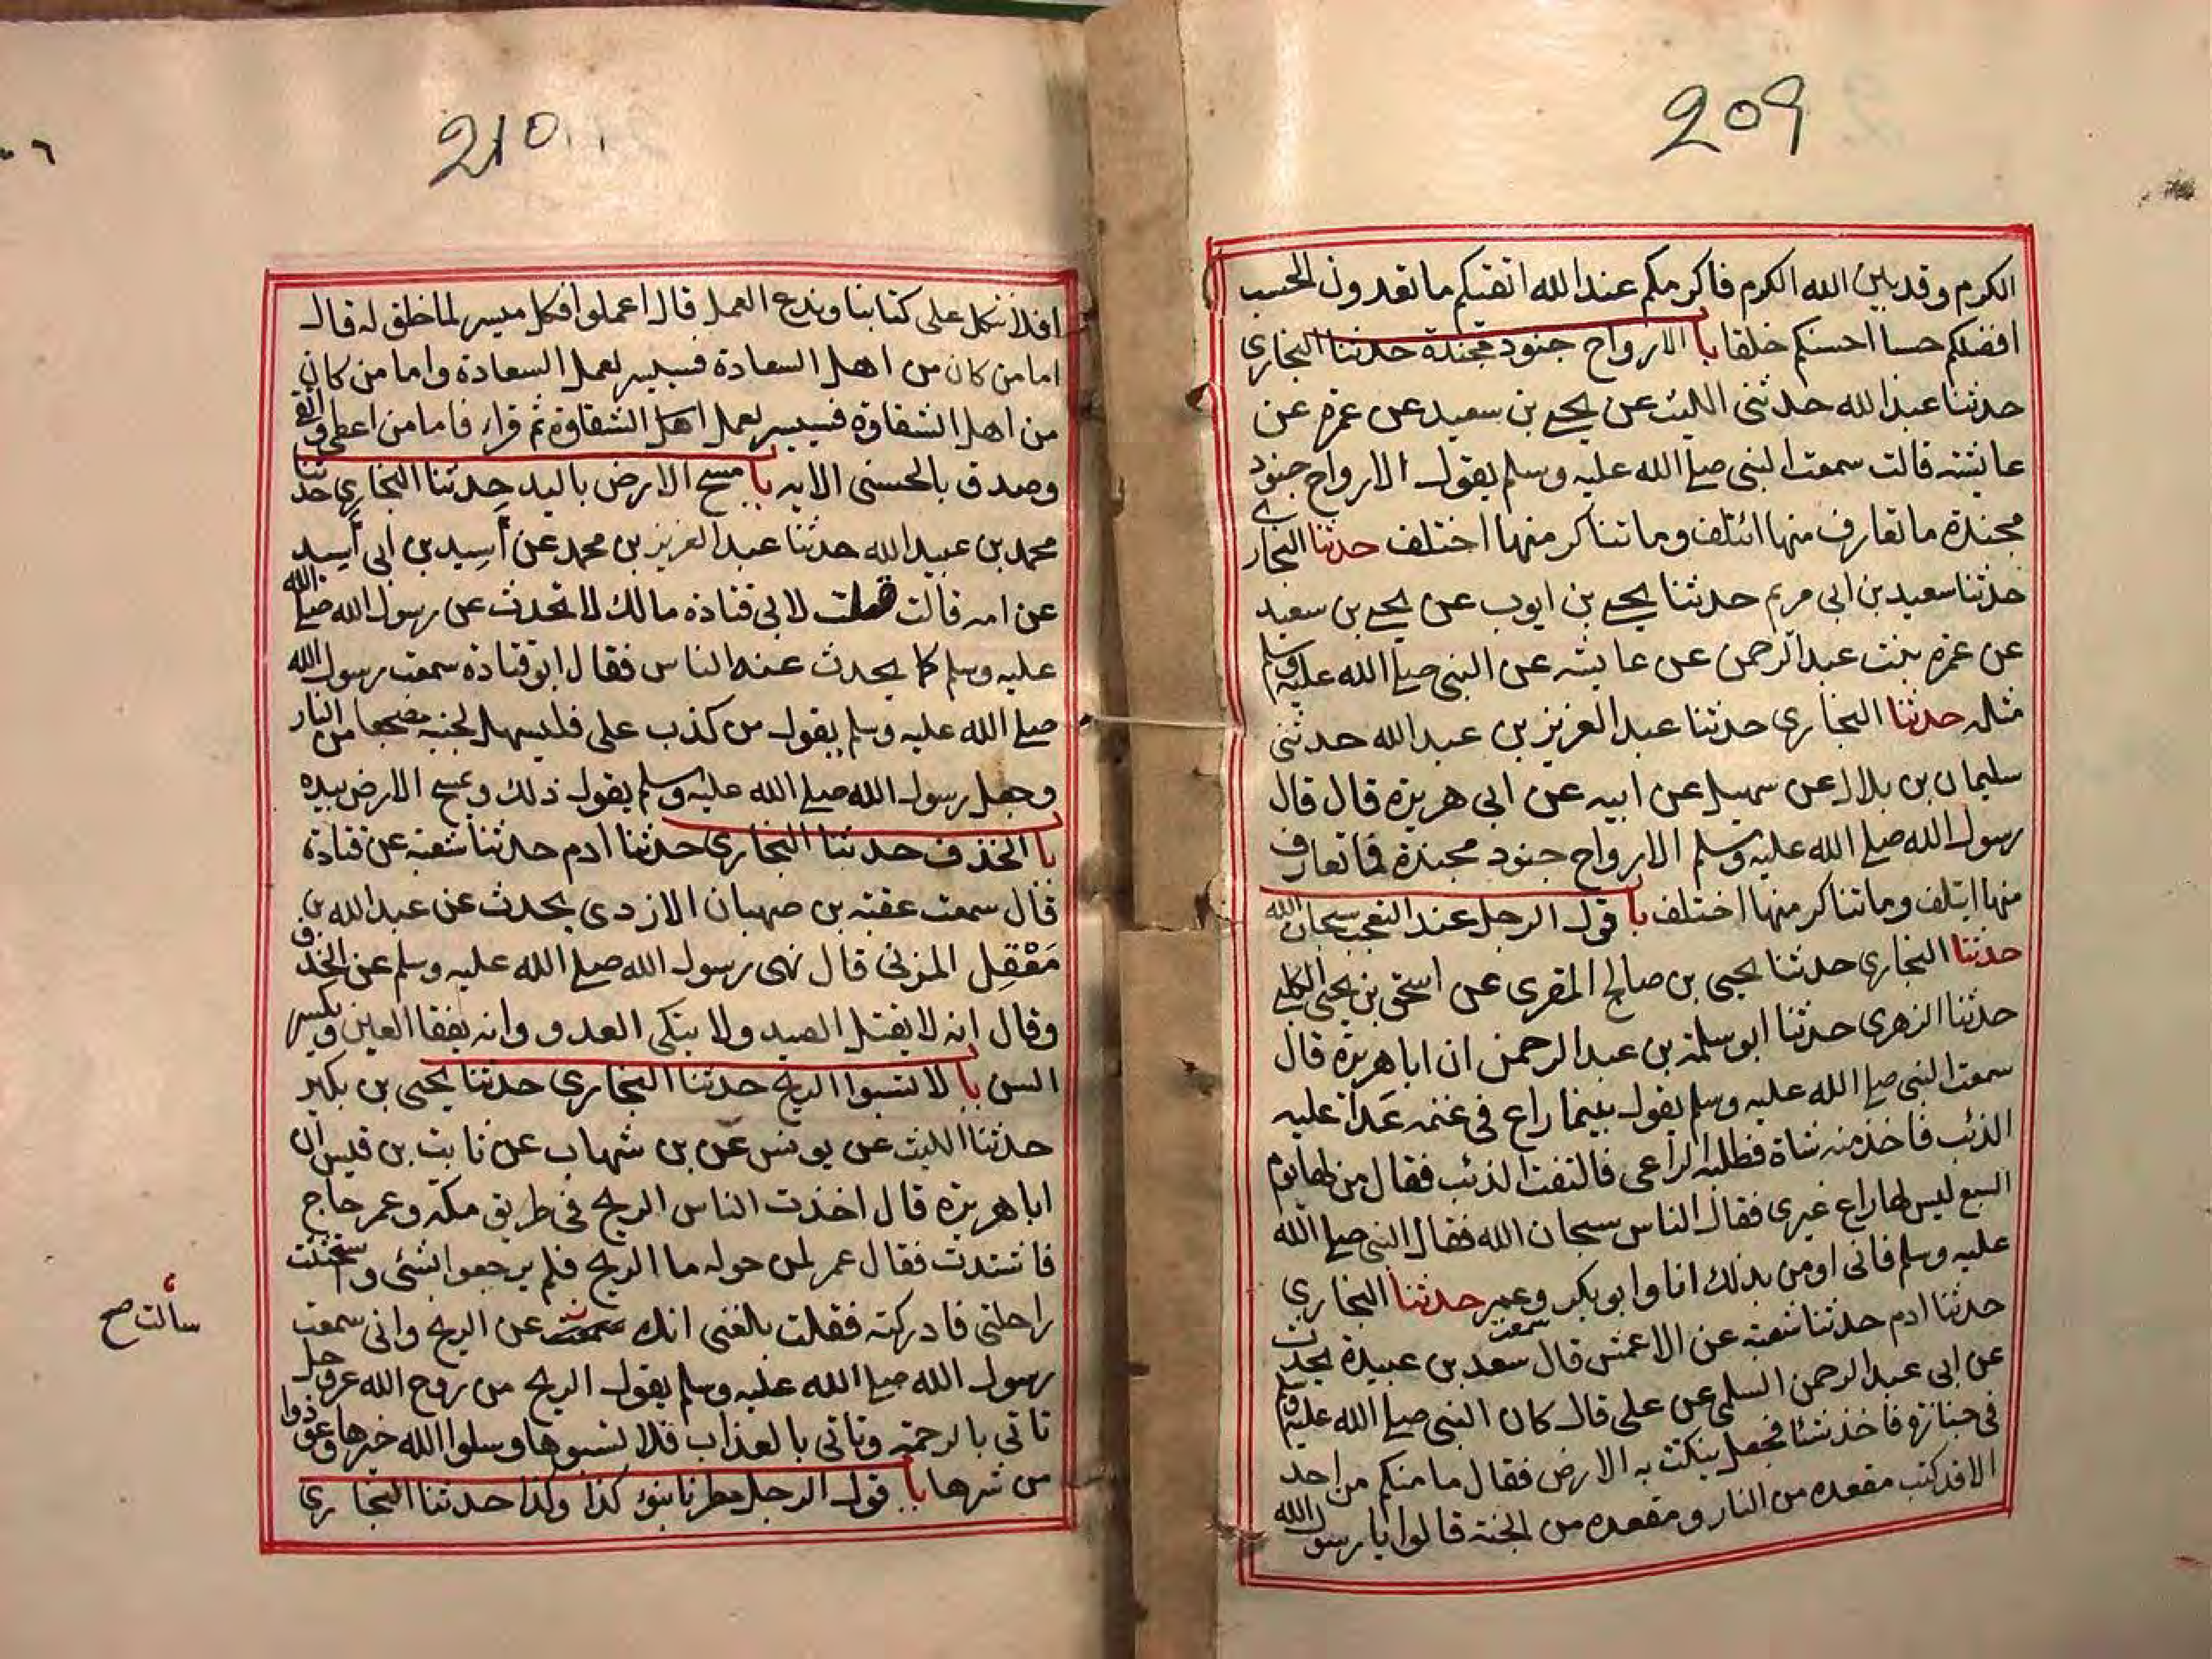 209
الكرم وقد بين الله الكرم فاكرمكم عند الله اتقيكم ما تعدون الحسب
افضلكم حسبا احسنكم خلقا با الارواح جنود مجندة حدثنا البخاري
حدثنا عبد الله حدثنى الليث عن يحيى بن سعيد عن عمرة عن
عايشة قالت سمعت النبى صلى الله عليه وسلم يقول الارواح جنود
مجندة ما تعارف منها ائتلف وما تناكر منها اختلف حدثنا البخاري
حدثنا سعيد بن ابى مريم حدثنا يحيى بن ايوب عن يحيى بن سعيد
عن عمرة بنت عبد الرحمن عن عايشه عن النبى صلى الله عليه وسلم
مثله حدثنا البخاري حدثنا عبد العزيز بن عبد الله حدثنى
سليمان بن بلال عن سهيل عن ابيه عن ابى هريرة قال قال
رسول الله صلى الله عليه وسلم الارواح جنود مجندة فما تعارف
منها ايتلف وما تناكر منها اختلف با قول الرجل عند التعجب سبحان الله
حدثنا البخاري حدثنا يحيى بن صالح المقرى عن اسحق بن يحيى الكلبى
حدثنا الزهرى حدثنا ابو سلمة بن عبد الرحمن ان ابا هريرة قال
سمعت النبى صلى الله عليه وسلم يقول بينما راع فى غنمه عدا عليه
الذئب فاخذ منه شاة فطلبه الراعى فالتفت الذئب فقال من لها يوم
السبع ليس لها راع غيرى فقال الناس سبحان الله فقال النبى صلى الله
عليه وسلم فانى اومن بذلك انا وابو بكر وعمر حدثنا البخاري
حدثنا ادم حدثنا شعبة عن الاعمش قال سمعت سعد بن عبيدة يحدث
عن ابى عبد الرحمن السلمى عن على قال كان النبى صلى الله عليه وسلم
فى جنازة فاخذ شئا فجعل ينكت به الارض فقال ما منكم من احد
الا قد كتب مقعده من النار ومقعده من الجنة قالوا يا رسول الله
210
افلا نتكل على كتابنا وندع العمل قال اعملوا فكل ميسر لما خلق له قال
اما من كان من اهل السعادة فسييسر لعمل السعادة واما من كان
من اهل الشقاوة فسييسر لعمل اهل الشقاوة ثم قرا فاما من اعطى واتقى
وصدق بالحسنى الايه با مسح الارض باليد حدثنا البخاري حدثنا
محمد بن عبيد الله حدثنا عبد العزيز بن محمد عن أسيد بن ابى أسيد
عن امه قالت قلت لابى قتادة مالك لا تحدث عن رسول الله صلى الله
عليه وسلم كما يحدث عنه الناس فقال ابو قتادة سمعت رسول الله
صلى الله عليه وسلم يقول من كذب على فليسهل لجنبه مضجعا من النار
وجعل رسول الله صلى الله عليه وسلم يقول ذلك ويمسح الارض بيده
با الخذف حدثنا البخاري حدثنا ادم حدثنا شعبة عن قتادة
قال سمعت عقبة بن صهبان الازدى يحدث عن عبد الله بن
مَعْقِل المزنى قال نهى رسول الله صلى الله عليه وسلم عن الخذف
وقال انه لا يقتل الصيد ولا ينكى العدو وانه يفقا العين ويكسر
السن با لا تسبوا الريح حدثنا البخاري حدثنا يحيى بن بكير
حدثنا الليث عن يونس عن بن شهاب عن ثابت بن قيس ان
ابا هريرة قال اخذت الناس الريح فى طريق مكة وعمر حاج
فاشتدت فقال عمر لمن حوله ما الريح فلم يرجعوا بشئى واستحثثت
راحلتى فادركته فقلت بلغنى انك عن الريح وانى سمعت
سألت صح
رسول الله صلى الله عليه وسلم يقول الريح من روح الله عز وجل
تاتى بالرحمة وتاتى بالعذاب فلا تسبوها وسلوا الله خيرها وعوذوا
من شرها با قول الرجل مطرنا بنوء كذا وكذا حدثنا البخاري